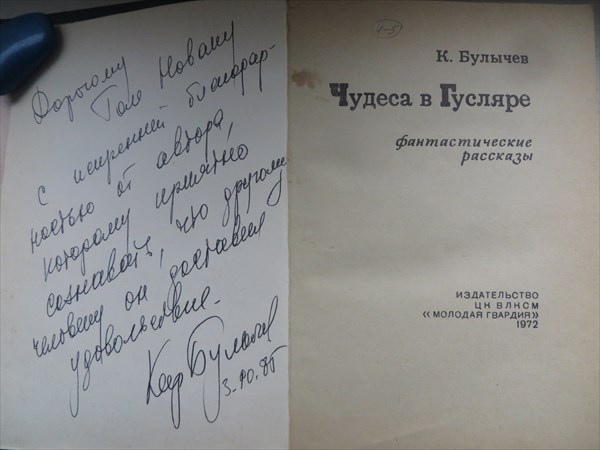 Дорогому
Толе Новаку
с искренней благодар-
ностью от автора,
которому приятно
сознавать, что другому
человеку он доставил
удовольствие.
Кир Булычев
3.10.85
1-5
К. Булычев
Чудеса в Гусляре
фантастические
рассказы
ИЗДАТЕЛЬСТВО
ЦК ВЛКСМ
«МОЛОДАЯ ГВАРДИЯ»
1972